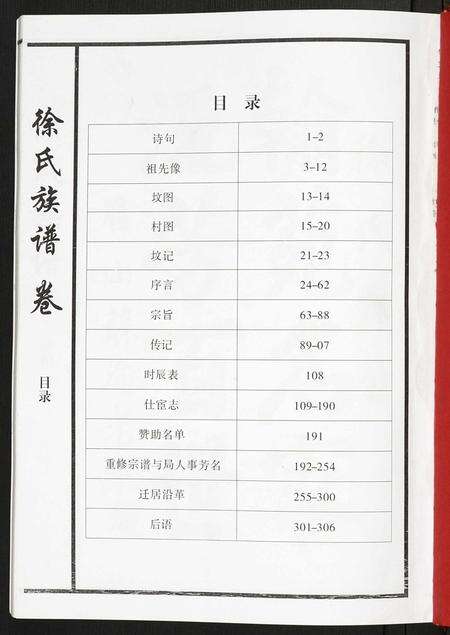 徐氏族谱 卷
目录
目 录
诗句 1-2
祖先像 3-12
坟图 13-14
村图 15-20
坟记 21-23
序言 24-62
宗旨 63-88
传记 89-07
时辰表 108
仕宦志 109-190
赞助名单 191
重修宗谱与局人事芳名 192-254
迁居沿革 255-300
后语 301-306